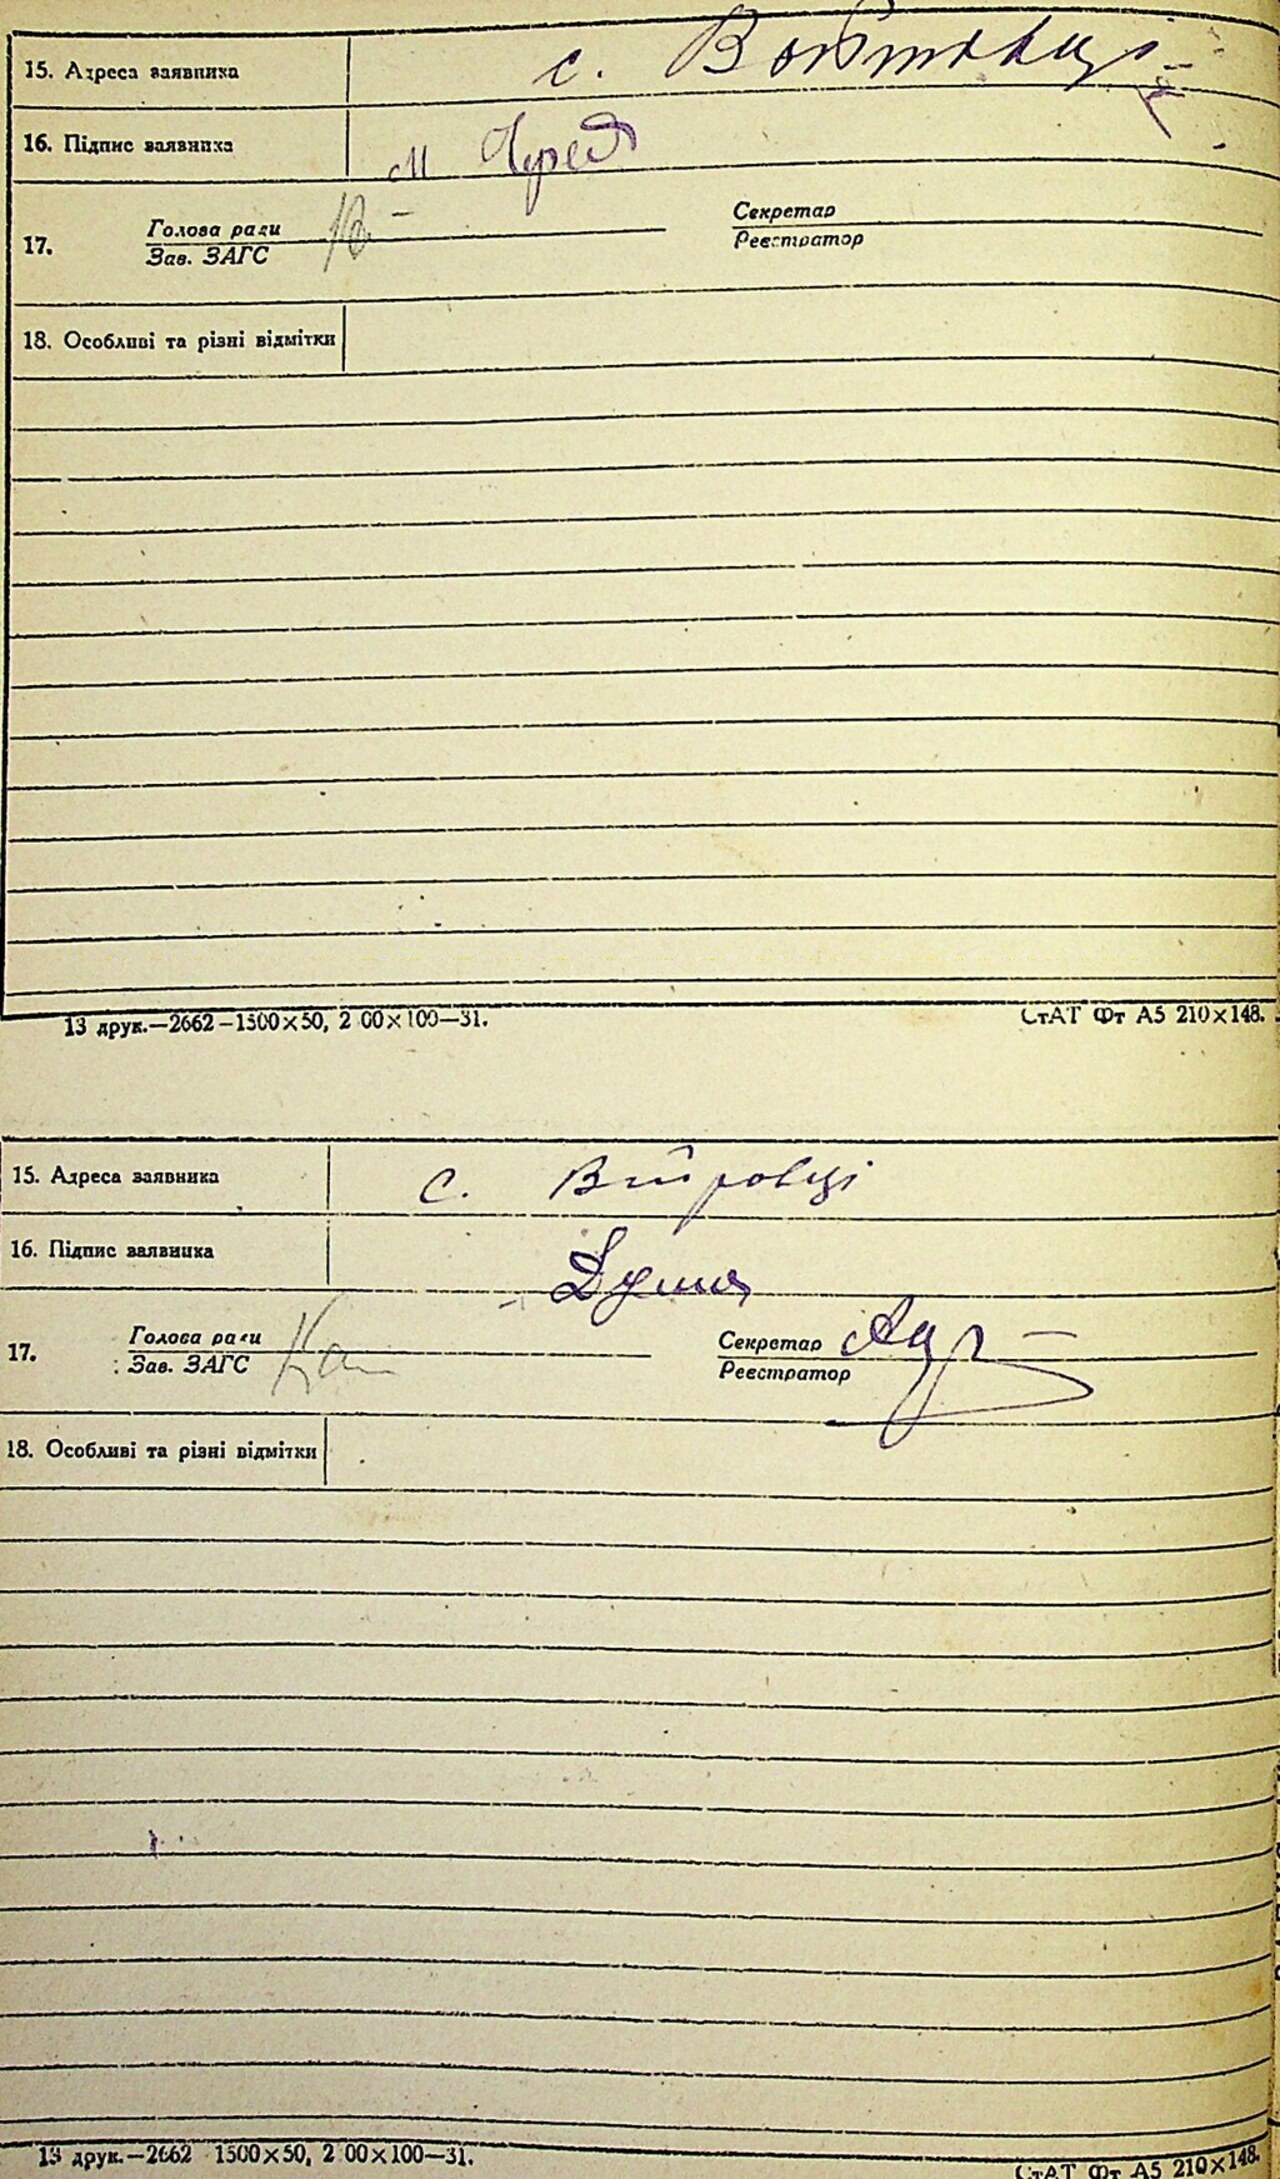 15. Адреса заявника с. Войтівці
16. Підпис заявника М
17. Голова ради Секретар
Зав. ЗАГС Реєстратор
18. Особливі та різні відмітки
13 друк.—2662—1500×50, 2 00×100—31. СтАТ Фт А5 210×148.
15. Адреса заявника с.
16. Підпис заявника
17. Голова ради Секретар
Зав. ЗАГС Реєстратор
18. Особливі та різні відмітки
13 друк.—2662 1500×50, 2 00×100—31. СтАТ Фт А5 210×148.